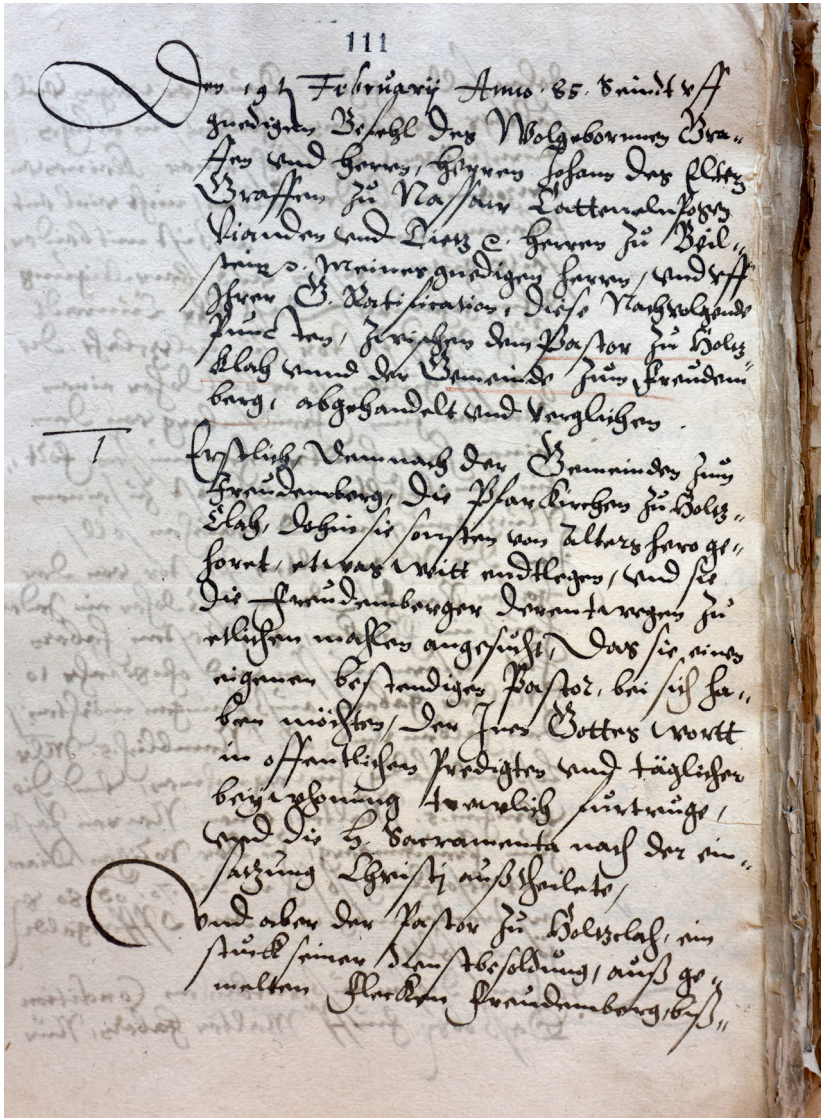 111
Den 19t Februarÿ Anno. 85. Seindt vff
gnedigen Befehl des Wolgebornnen Gra„
ffen vnd herrn, herren Johann des Eltern
Graffen zu Nassaw Cattenelnpogen
Vianden vnd Dietz etc. herren zu Beil„
stein etc. Meines gnedigen herrn, vnd vff
Ihrer G. Ratification, diese Nachvolgende
Puncten, zwischen dem Pastor zu Holtz„
klah vnnd der Gemeinde zum Freudem
berg, abgehandelt vnd verglichen.
1
Erstlich, Demnach der Gemeinden zum
Freudemberg, die PfarKirchen zu Holtz„
Clah, dohin sie sonsten von Alters hero ge„
horet, etwas witt endtlegen, vnd sie
die Freudemberger derentwegen zu
etlichen mahlen angesucht, Das sie einen
eigenen bestendigen Pastor, bei sich ha„
ben möchten, der Inen Gottes wortt
in offentlichen Predigten vnd täglicher
beÿwhonung trewlich furtruge,
vnd die H. Sacramenta nach der ein„
satzung Christj außtheilete,
Vnd aber der Pastor zu Holtzclah, ein
stuck seiner dienstbesoldung, auß ge„
melten Flecken Freudemberg, biß„